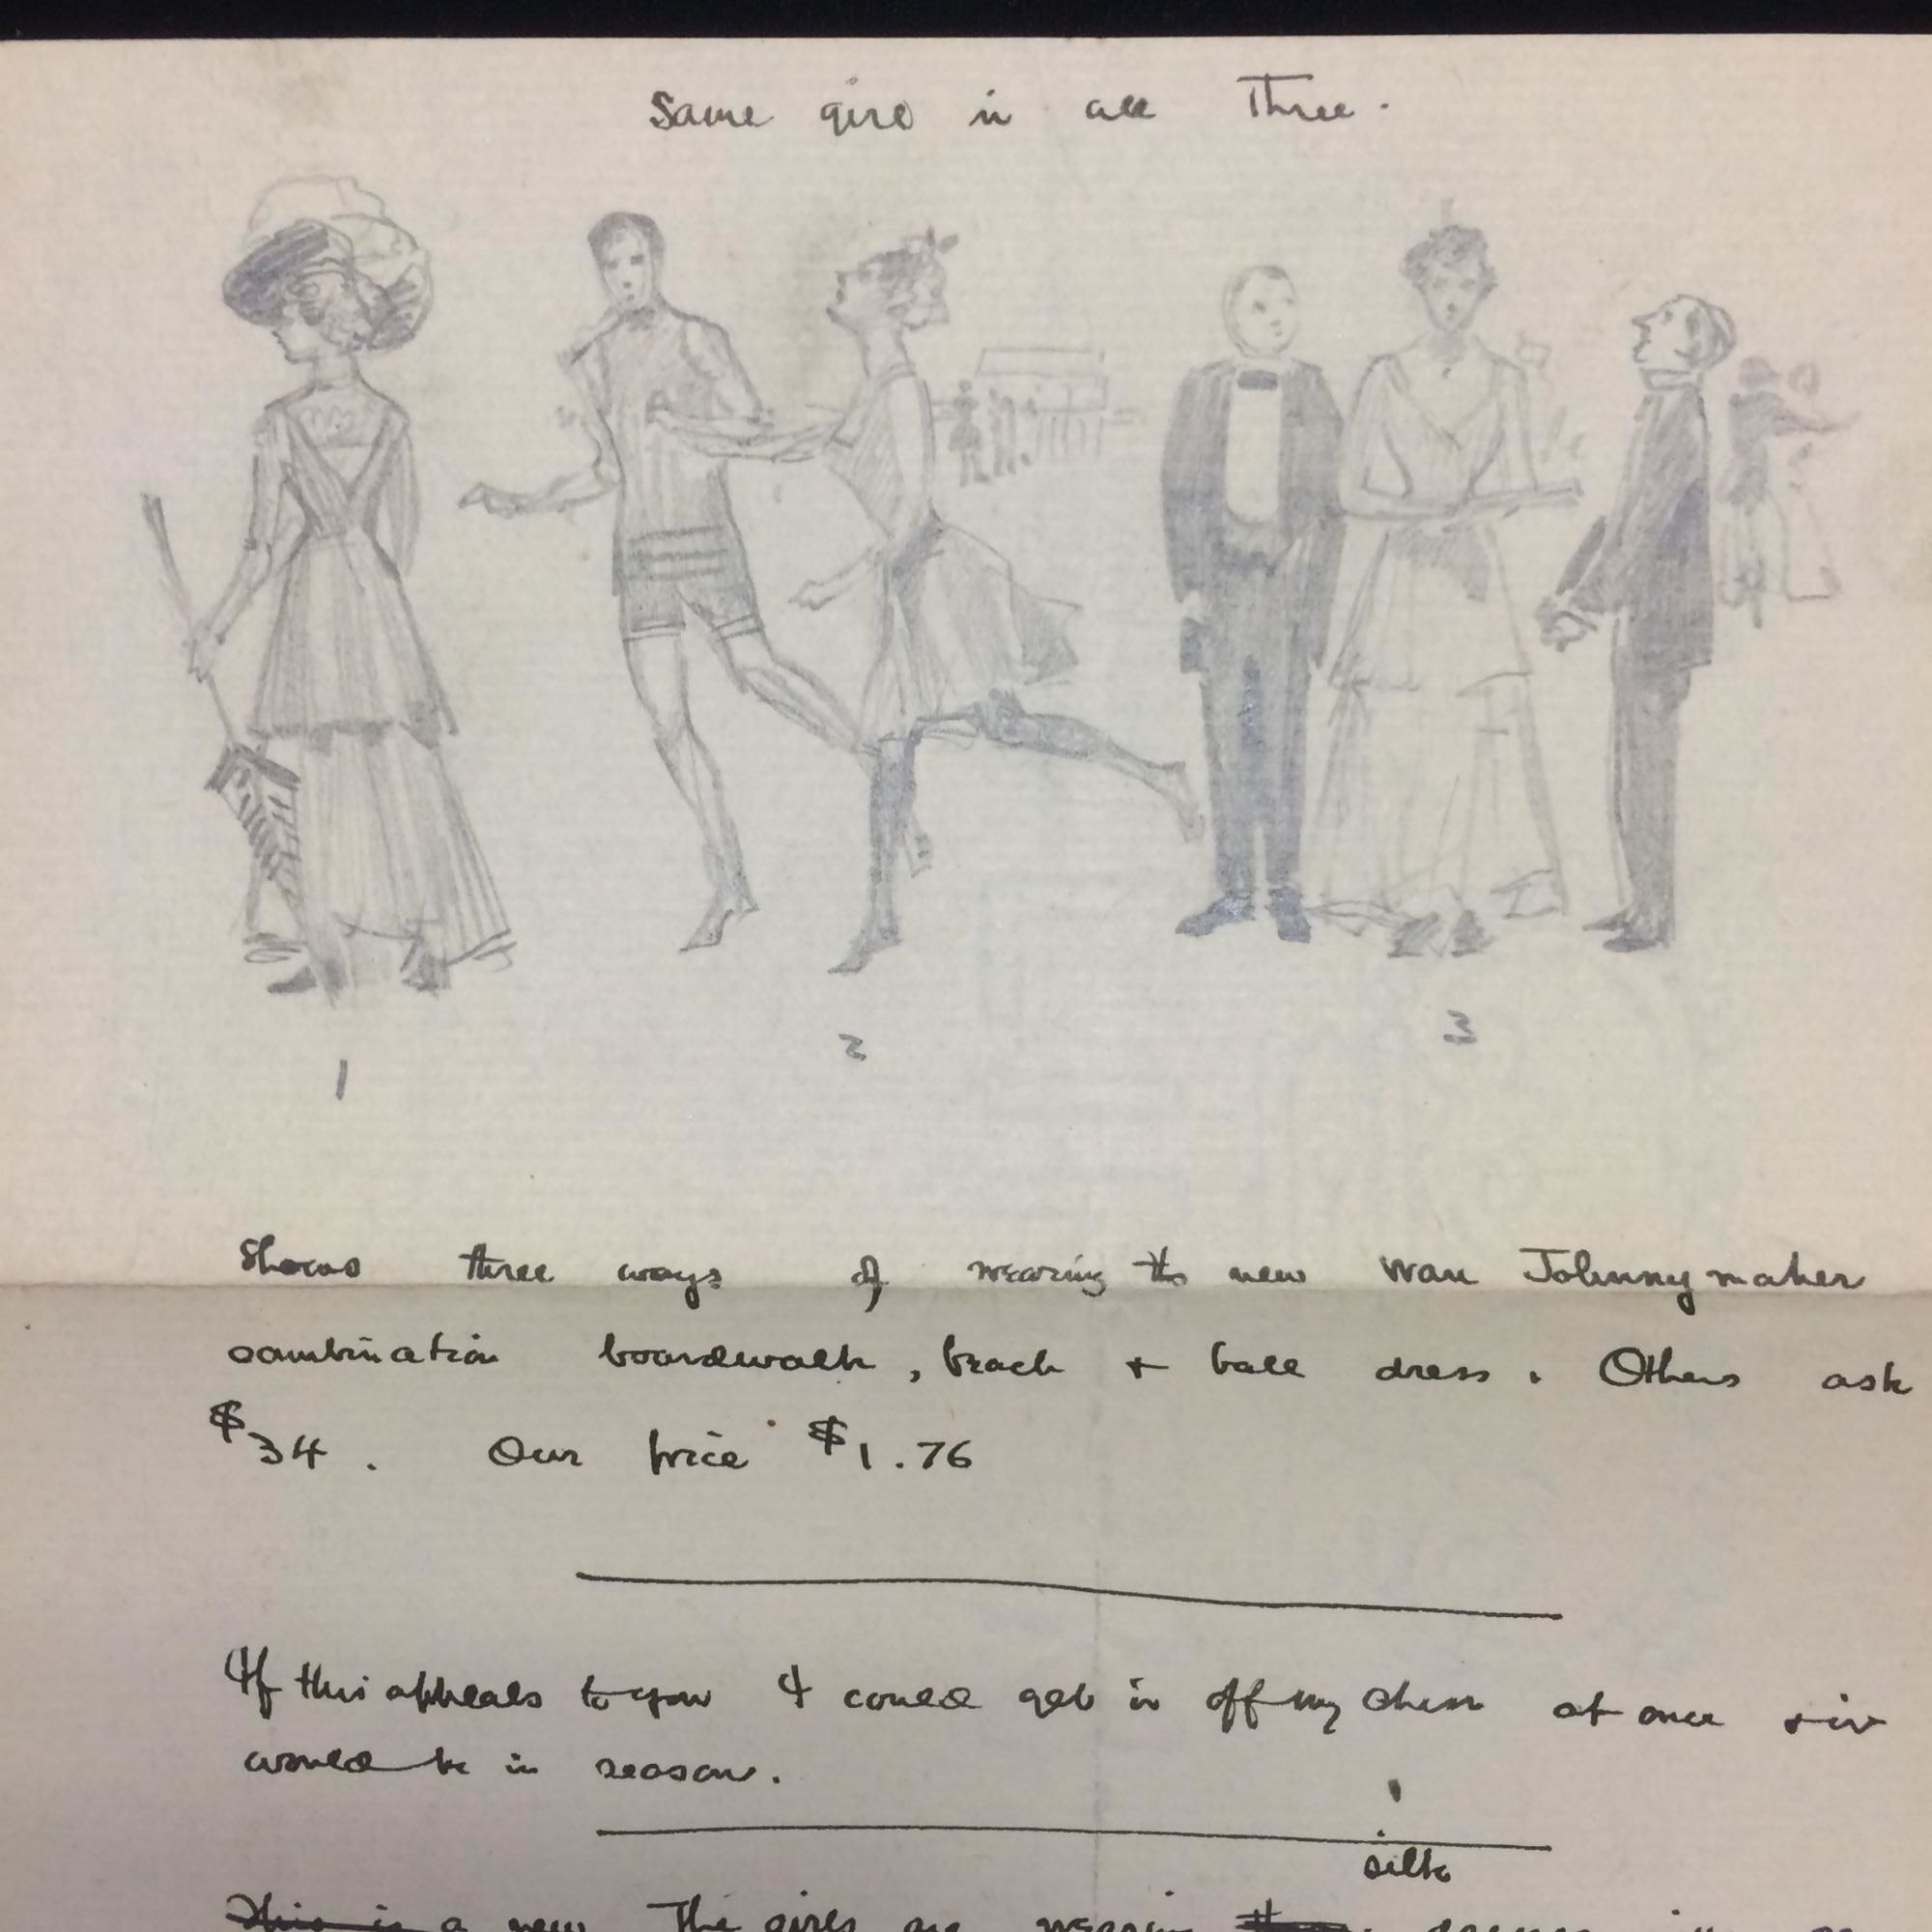 Same girl in all Three.
1 2 3
Shows three ways of wearing the new Wan Johnnymaker
combination boardwalk, beach + ball dress. Others ask
$34. Our price $1.76
If this appeals to you I could get it off my chest at once + it
would be in season.
silk
This is a new The girls are wearing